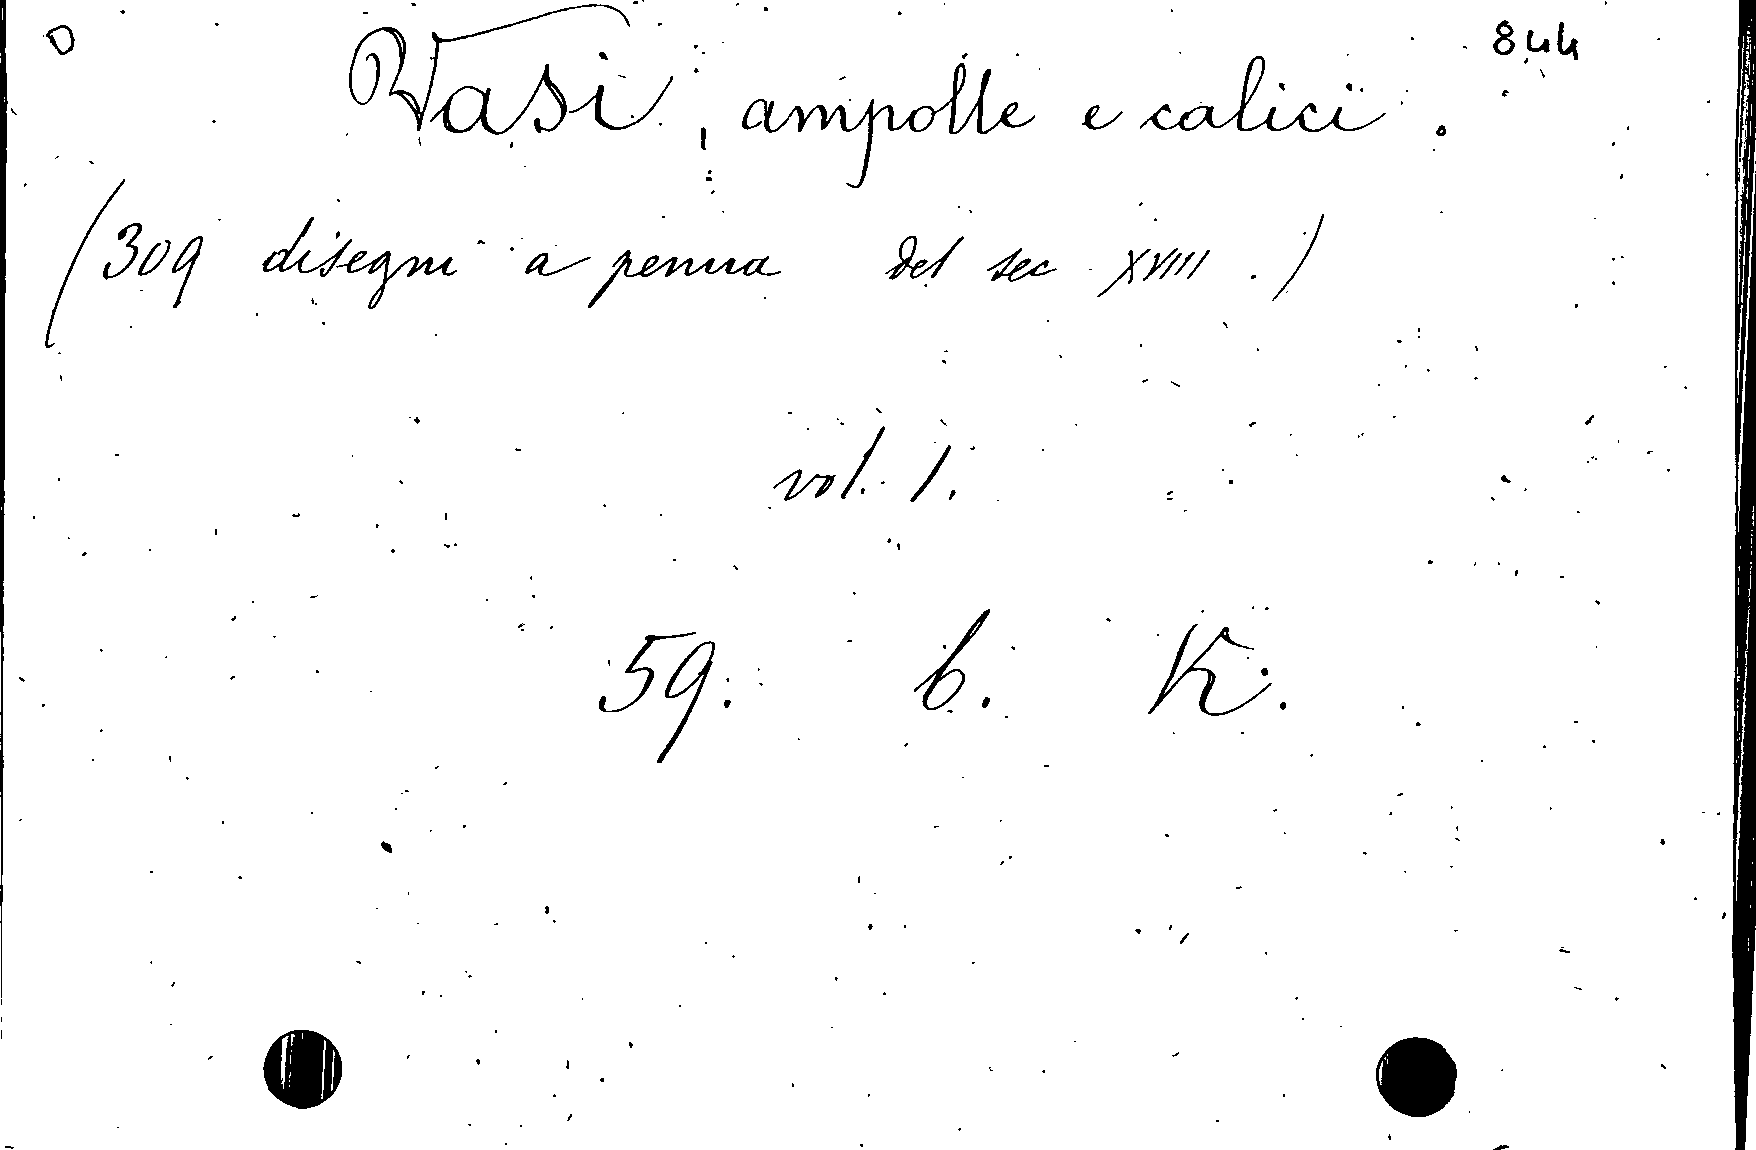 D 844
Vasi, ampolle e calici.
(309 disegni a penna del sec XVIII.)
vol. 1.
59. b. K.